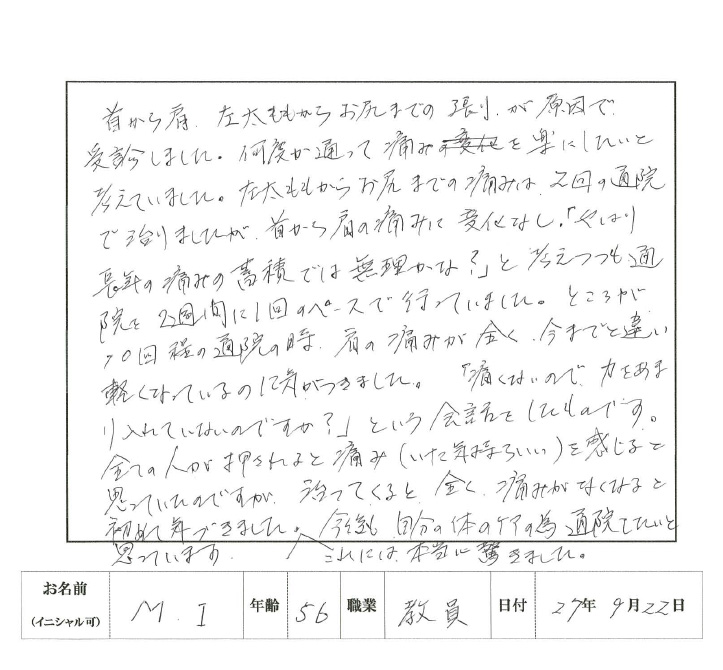 首から肩、左太ももからお尻までの張りが原因で
受診しました。何度か通って痛みを楽にしたいと
考えていました。左太ももからお尻までの痛みは、2回の通院
で治りましたが、首から肩の痛みに変化なし。「やはり
長年の痛みの蓄積では無理かな?」と考えつつも通
院を2週間に1回のペースで行っていました。ところが、
10回程の通院の時、肩の痛みが全く、今までと違い
軽くなっているのに気がつきました。「痛くないので、力をあま
り入れていないのですか?」という会話をしたものです。
全ての人が押されると痛み(いた気持ちいい)を感じると
思っていたのですが、治ってくると全く、痛みがなくなると
初めて気づきました。今後も自分の体のケアの為通院したいと
思っています。 これには、本当に驚きました。
お名前 (イニシャル可) M.I 年齢 56 職業 教員 日付 27年 9月22日